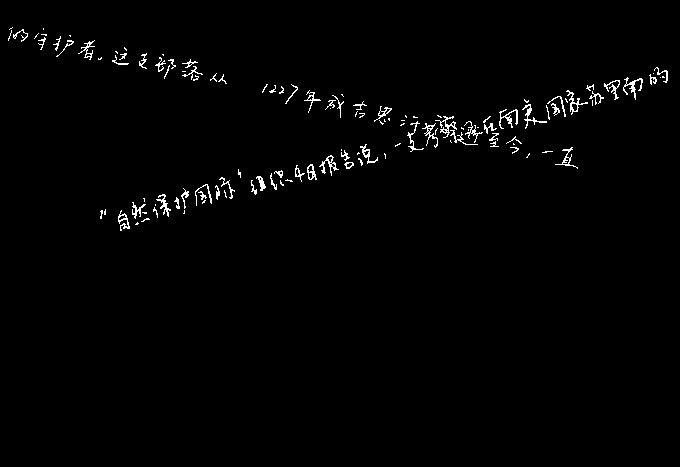 的守护者。这支部落从1227年成吉思汗逝世至今，一直
“自然保护国际”组织4日报告说，一支考察队在南美国家苏里南的